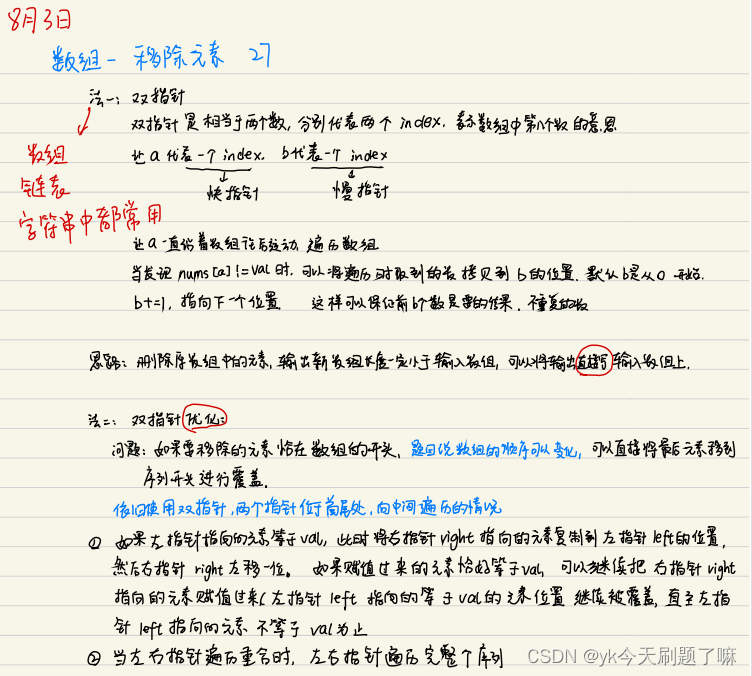 8月3日
数组一 移除元素 27
法一: 双指针
双指针是相当于两个数, 分别代表两个 index. 表示数组中第几个数的意思
让 a 代表一个 index. b代表一个 index
快指针 慢指针
数组
链表
字符串中都常用
让a一直沿着数组往后移动, 遍历数组
当发现 nums[a] != val 时, 可以将遍历时取到的 拷贝到 b 的位置. 默认b是从0 开始.
b+=1, 指向下一个位置 这样可以保证前b个数是要的结果.
思路: 删除原数组中的元素, 输出新数组长度一定小于输入数组, 可以将输出直接写输入数组上.
法二: 双指针优化:
问题: 如果要移除的元素恰在数组的开头, 题目说数组的顺序可以变化, 可以直接将最后元素移到
序列开头进行覆盖.
依旧使用双指针, 两个指针位于首尾处, 向中间遍历的情况
① 如果左指针指向的元素等于val, 此时将右指针 right 指向的元素复制到左指针 left的位置,
然后右指针 right 左移一位. 如果赋值过来的元素恰好等于val, 可以继续把 右指针 right
指向的元素赋值过来(左指针 left 指向的等于val的元素位置 继续被覆盖, 直至左指
针 left 指向的元素 不等于 val为止
② 当左右指针遍历重合时, 左右指针遍历完整个序列
CSDN @yk今天刷题了嘛